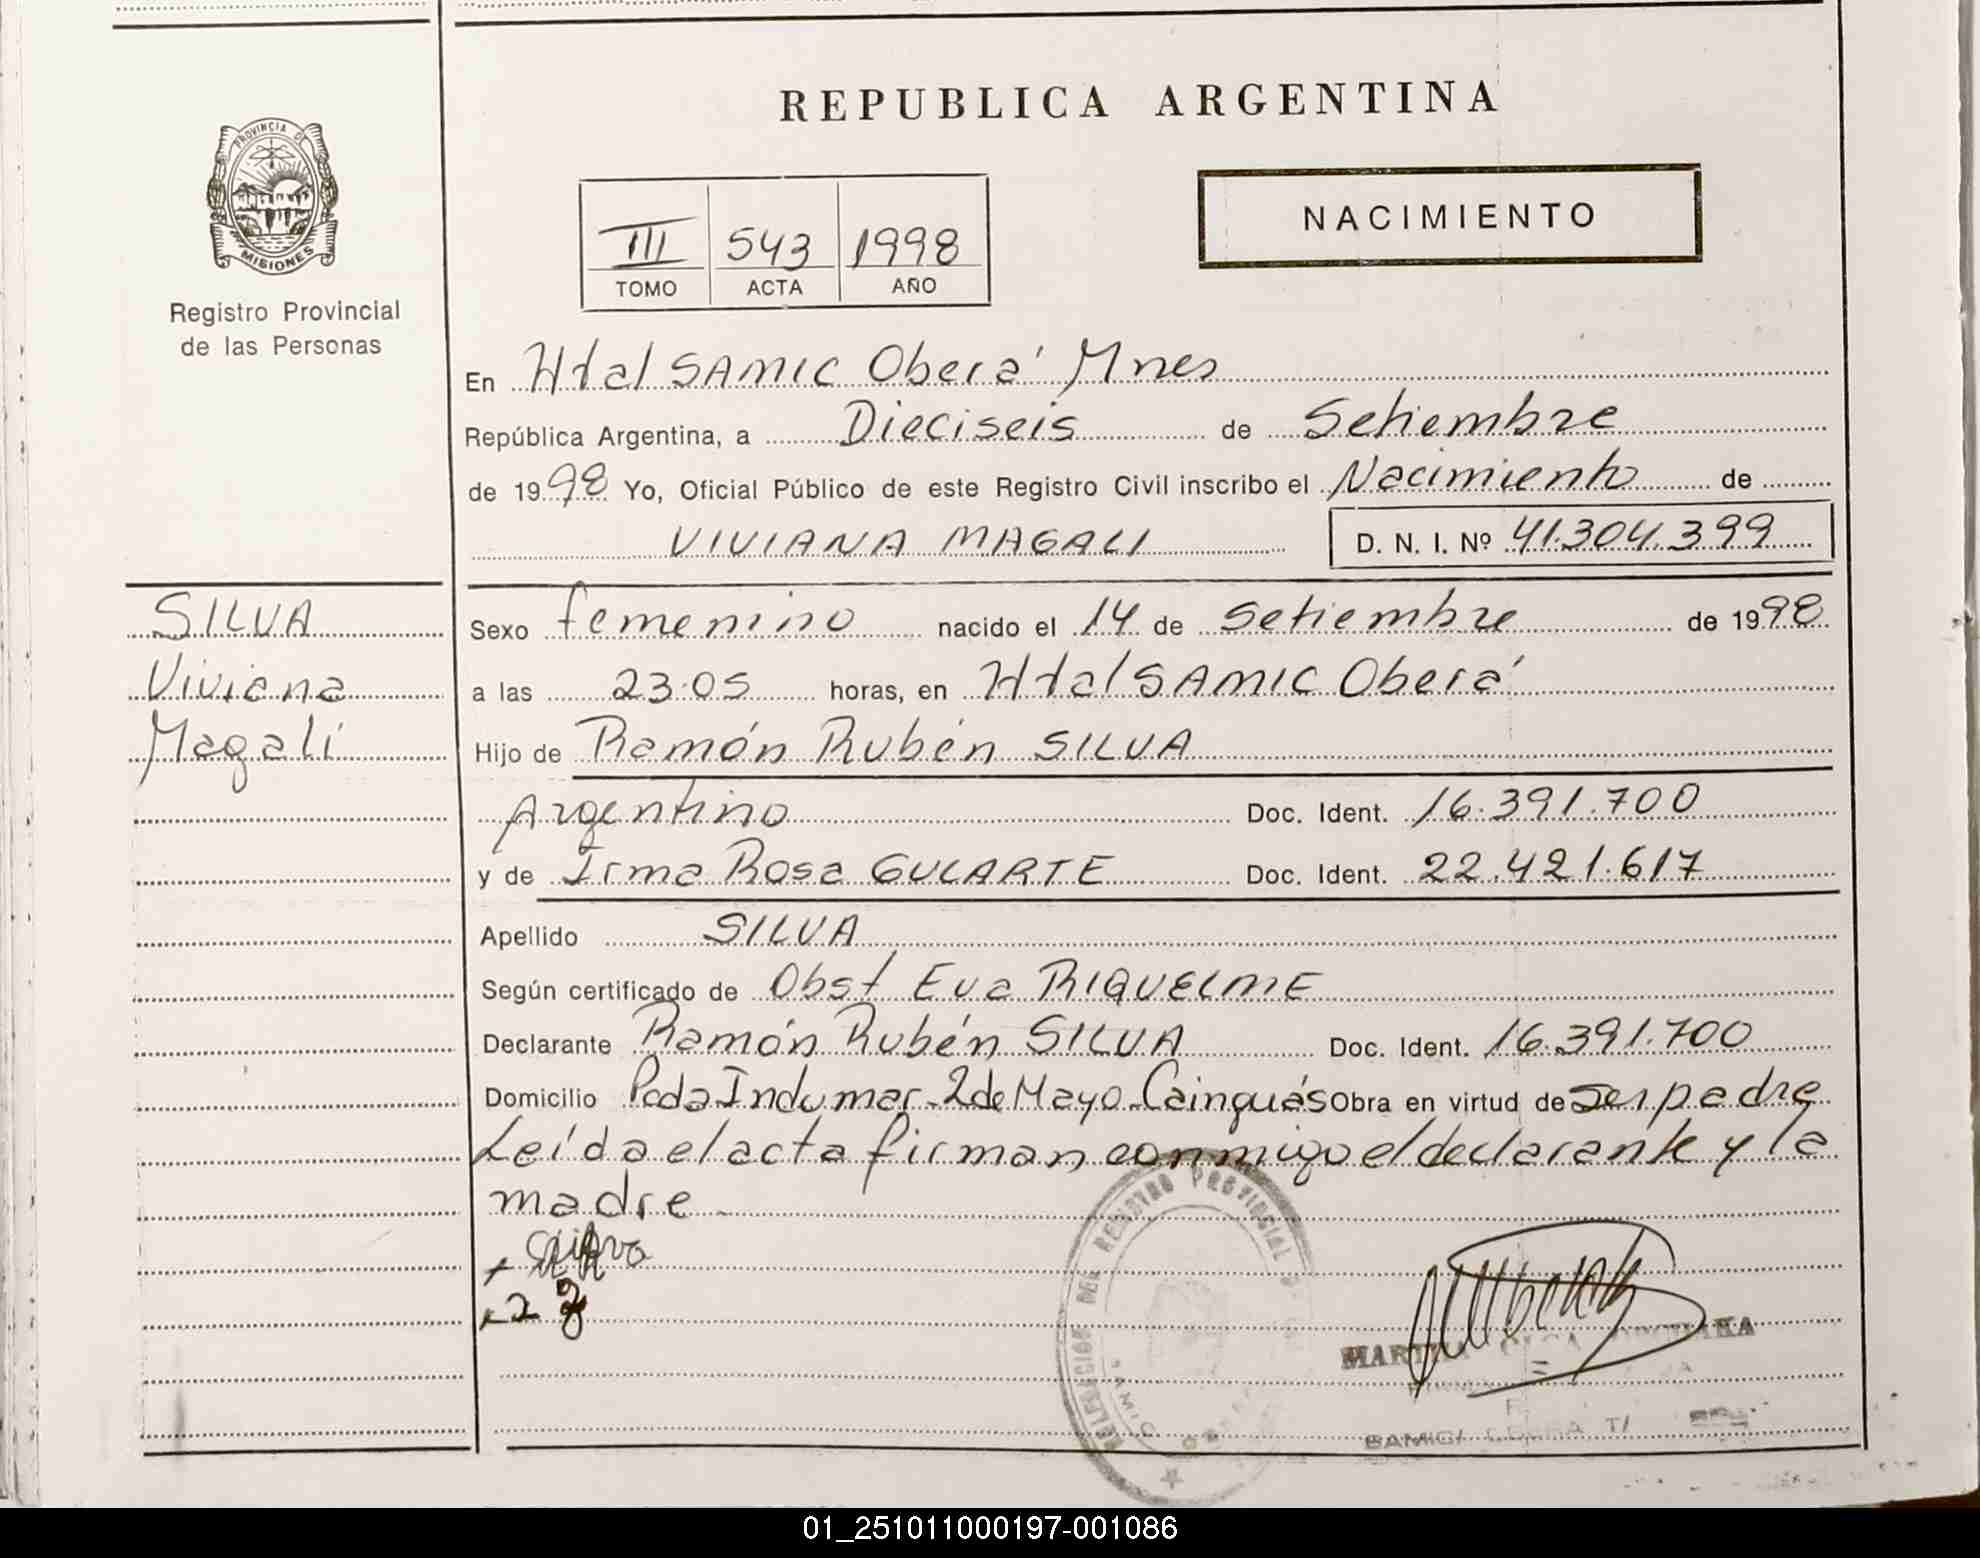 REPUBLICA ARGENTINA
PROVINCIA DE
MISIONES
Registro Provincial
de las Personas
NACIMIENTO
III 543 1998
TOMO ACTA AÑO
En Htal SAMIC Oberá Mnes
República Argentina, a Dieciseis de Setiembre
de 1998 Yo, Oficial Público de este Registro Civil inscribo el Nacimiento de
VIVIANA MAGALI D. N. I. Nº 41.304.399
SILVA
Viviana
Magali
Sexo femenino nacido el 14 de Setiembre de 1998
a las 23.05 horas, en Htal SAMIC Oberá
Hijo de Ramón Rubén SILVA
Argentino Doc. Ident. 16.391.700
y de Irma Rosa GULARTE Doc. Ident. 22.421.617
Apellido SILVA
Según certificado de Obst Eva RIQUELME
Declarante Ramón Rubén SILVA Doc. Ident. 16.391.700
Domicilio Pcda Indumar-2 de Mayo-Cainguás Obra en virtud de ser padre
Leída el acta firman conmigo el declarante y la
madre
DELEGACION DEL REGISTRO PROVINCIAL
MARTHA OLGA
01_251011000197-001086